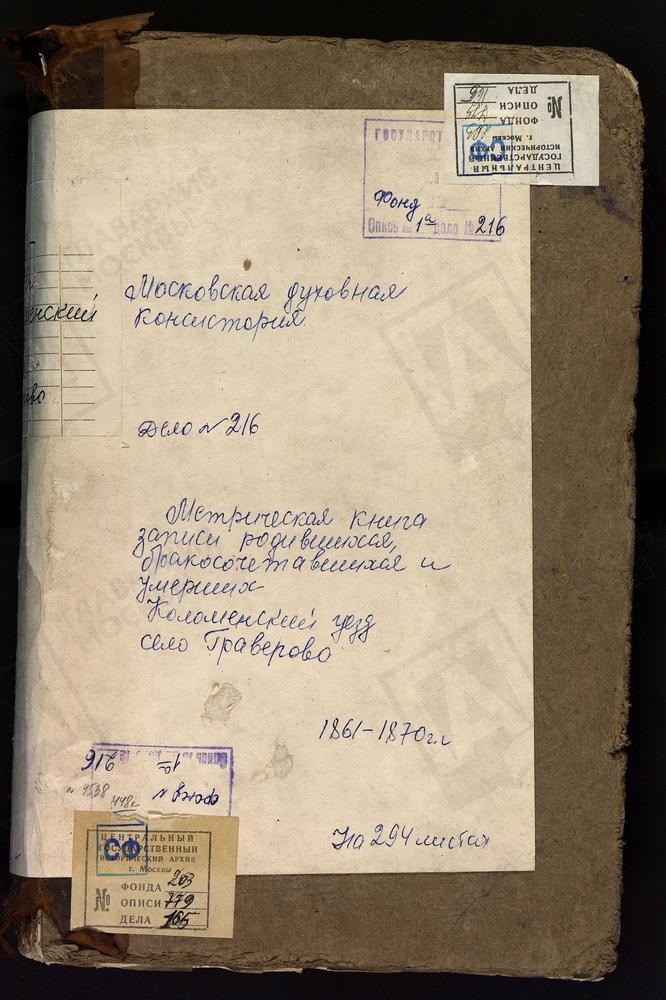 №
ЦЕНТРАЛЬНЫЙ
ГОСУДАРСТВЕННЫЙ
ИСТОРИЧЕСКИЙ АРХИВ
г. Москвы
СФ
ФОНДА 203
ОПИСИ
ДЕЛА
Фонд
Опись № 1а дело № 216
енский
ово
Московская духовная
консистория
Дело № 216
Метрическая книга
записи родившихся,
бракосочетавшихся и
умерших
Коломенский уезд
село Граверово
1861-1870 г.г
На 294 листах
Опись № 1а 216
Фонд №
№ 4538
448
ЦЕНТРАЛЬНЫЙ
ГОСУДАРСТВЕННЫЙ
ИСТОРИЧЕСКИЙ АРХИВ
г. Москвы
СФ
№
ФОНДА 203
ОПИСИ 779
ДЕЛА 165